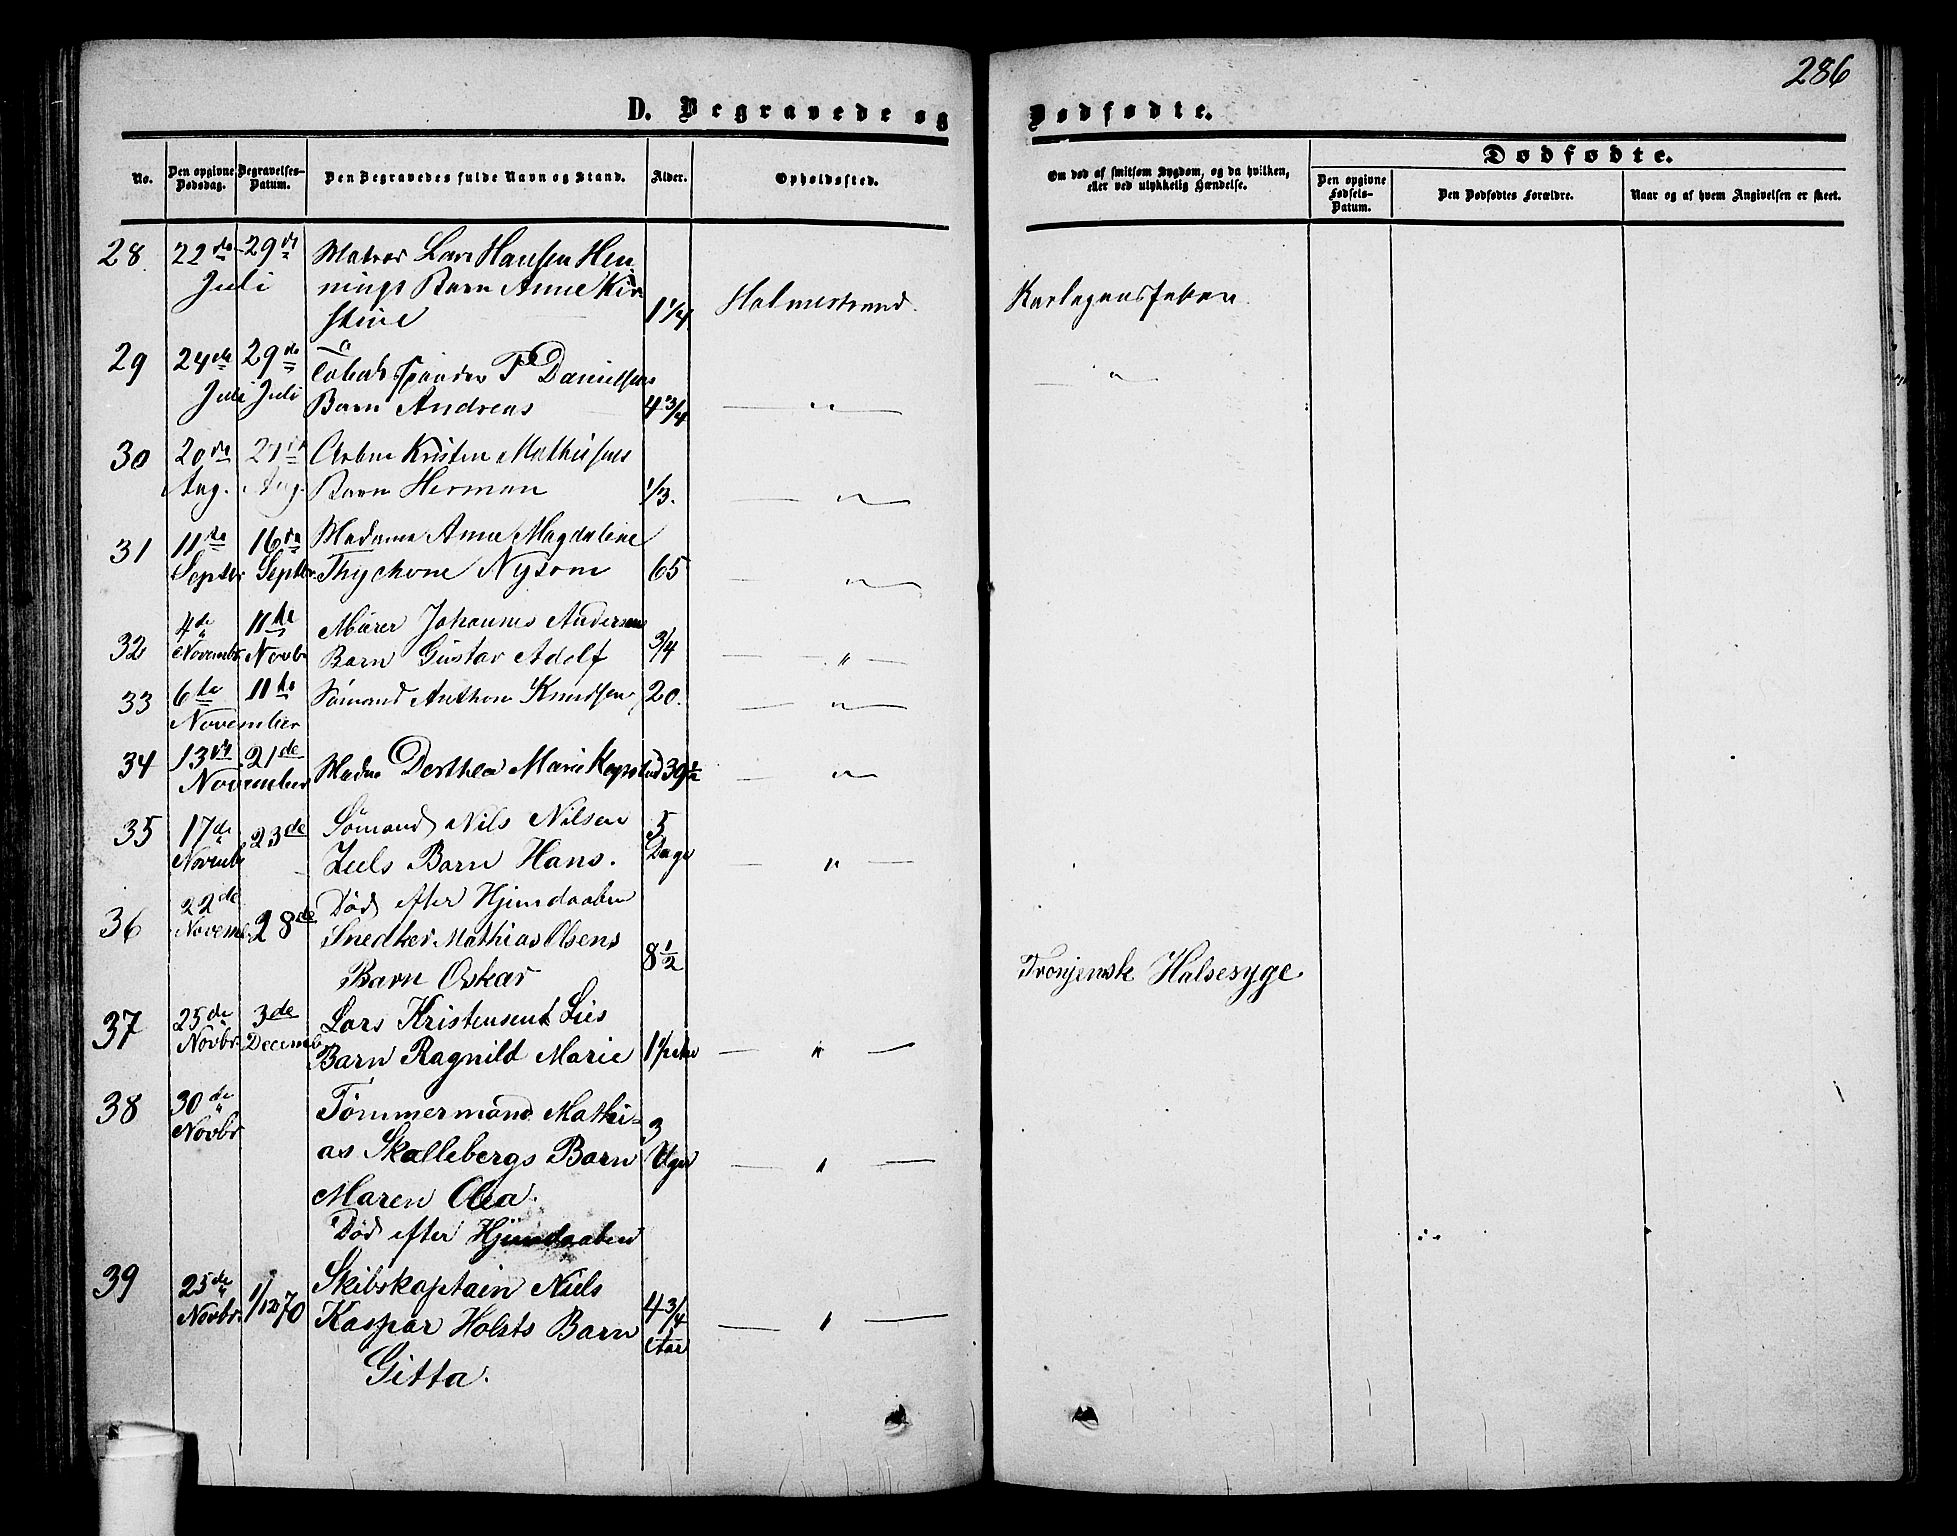 286
D. Begravede og Dødfødte.
No.
Den opgivne Dødsdag.
Begravelses-Datum.
Den Begravedes fulde Navn og Stand.
Alder.
Opholdssted.
Om død af smitsom Sygdom, og da hvilken, eller ved ulykkelig Hændelse.
Dødfødte.
Den opgivne Fødsels-Datum.
Den Dødfødtes Forældre.
Naar og af hvem Angivelsen er skeet.
28. 22de 29de Matros Lars Hansen Hen
Juli nings Barn Anne Kir
stine 1 1/4 Holmestrand. Skarlagensfeber
29 24de 29de Danielsens — " —
Juli Juli Barn Andreas 4 3/4 — " —
30 20de Kristen Mathisens
Aug. Aug. Barn Herman 1/3. — " —
31 11te 16de Madame Anne Magdaline
Septbr Septbr. Thychone Nysom 65 — " —
32 4de 11te Murer Johannes Andersens 3/4
Novembr. Novb Barn Gustav Adolf — " —
33 6te 11te Sømand Anthon Knudsen 20. — " —
November
34 13de 21de Madm Dorthea Marie 39 1/2 — " —
November
35 17de 23de Sømand Nils Nilsen 5
Novembr Juels Barn Hans. Dage — " —
36 22de 28de Død efter Hjemdaaben
Novemb. Snedker Mathias Olsens 8 1/2
Barn Oskar Halsesyge.
37 25de 3de Lars Kristensen
Novbr. Decemb Barn Ragnild Marie — " —
38 30de Tømmermand Mathi-
Novbr as Skallebergs Barn 3 Uger — " —
Maren Olea.
Død efter Hjemdaaben
39 25de Skibskaptain Niels
Novbr. 1/12 70 Kaspar Holsts Barn 4 3/4 Aar — " —
Gitta.